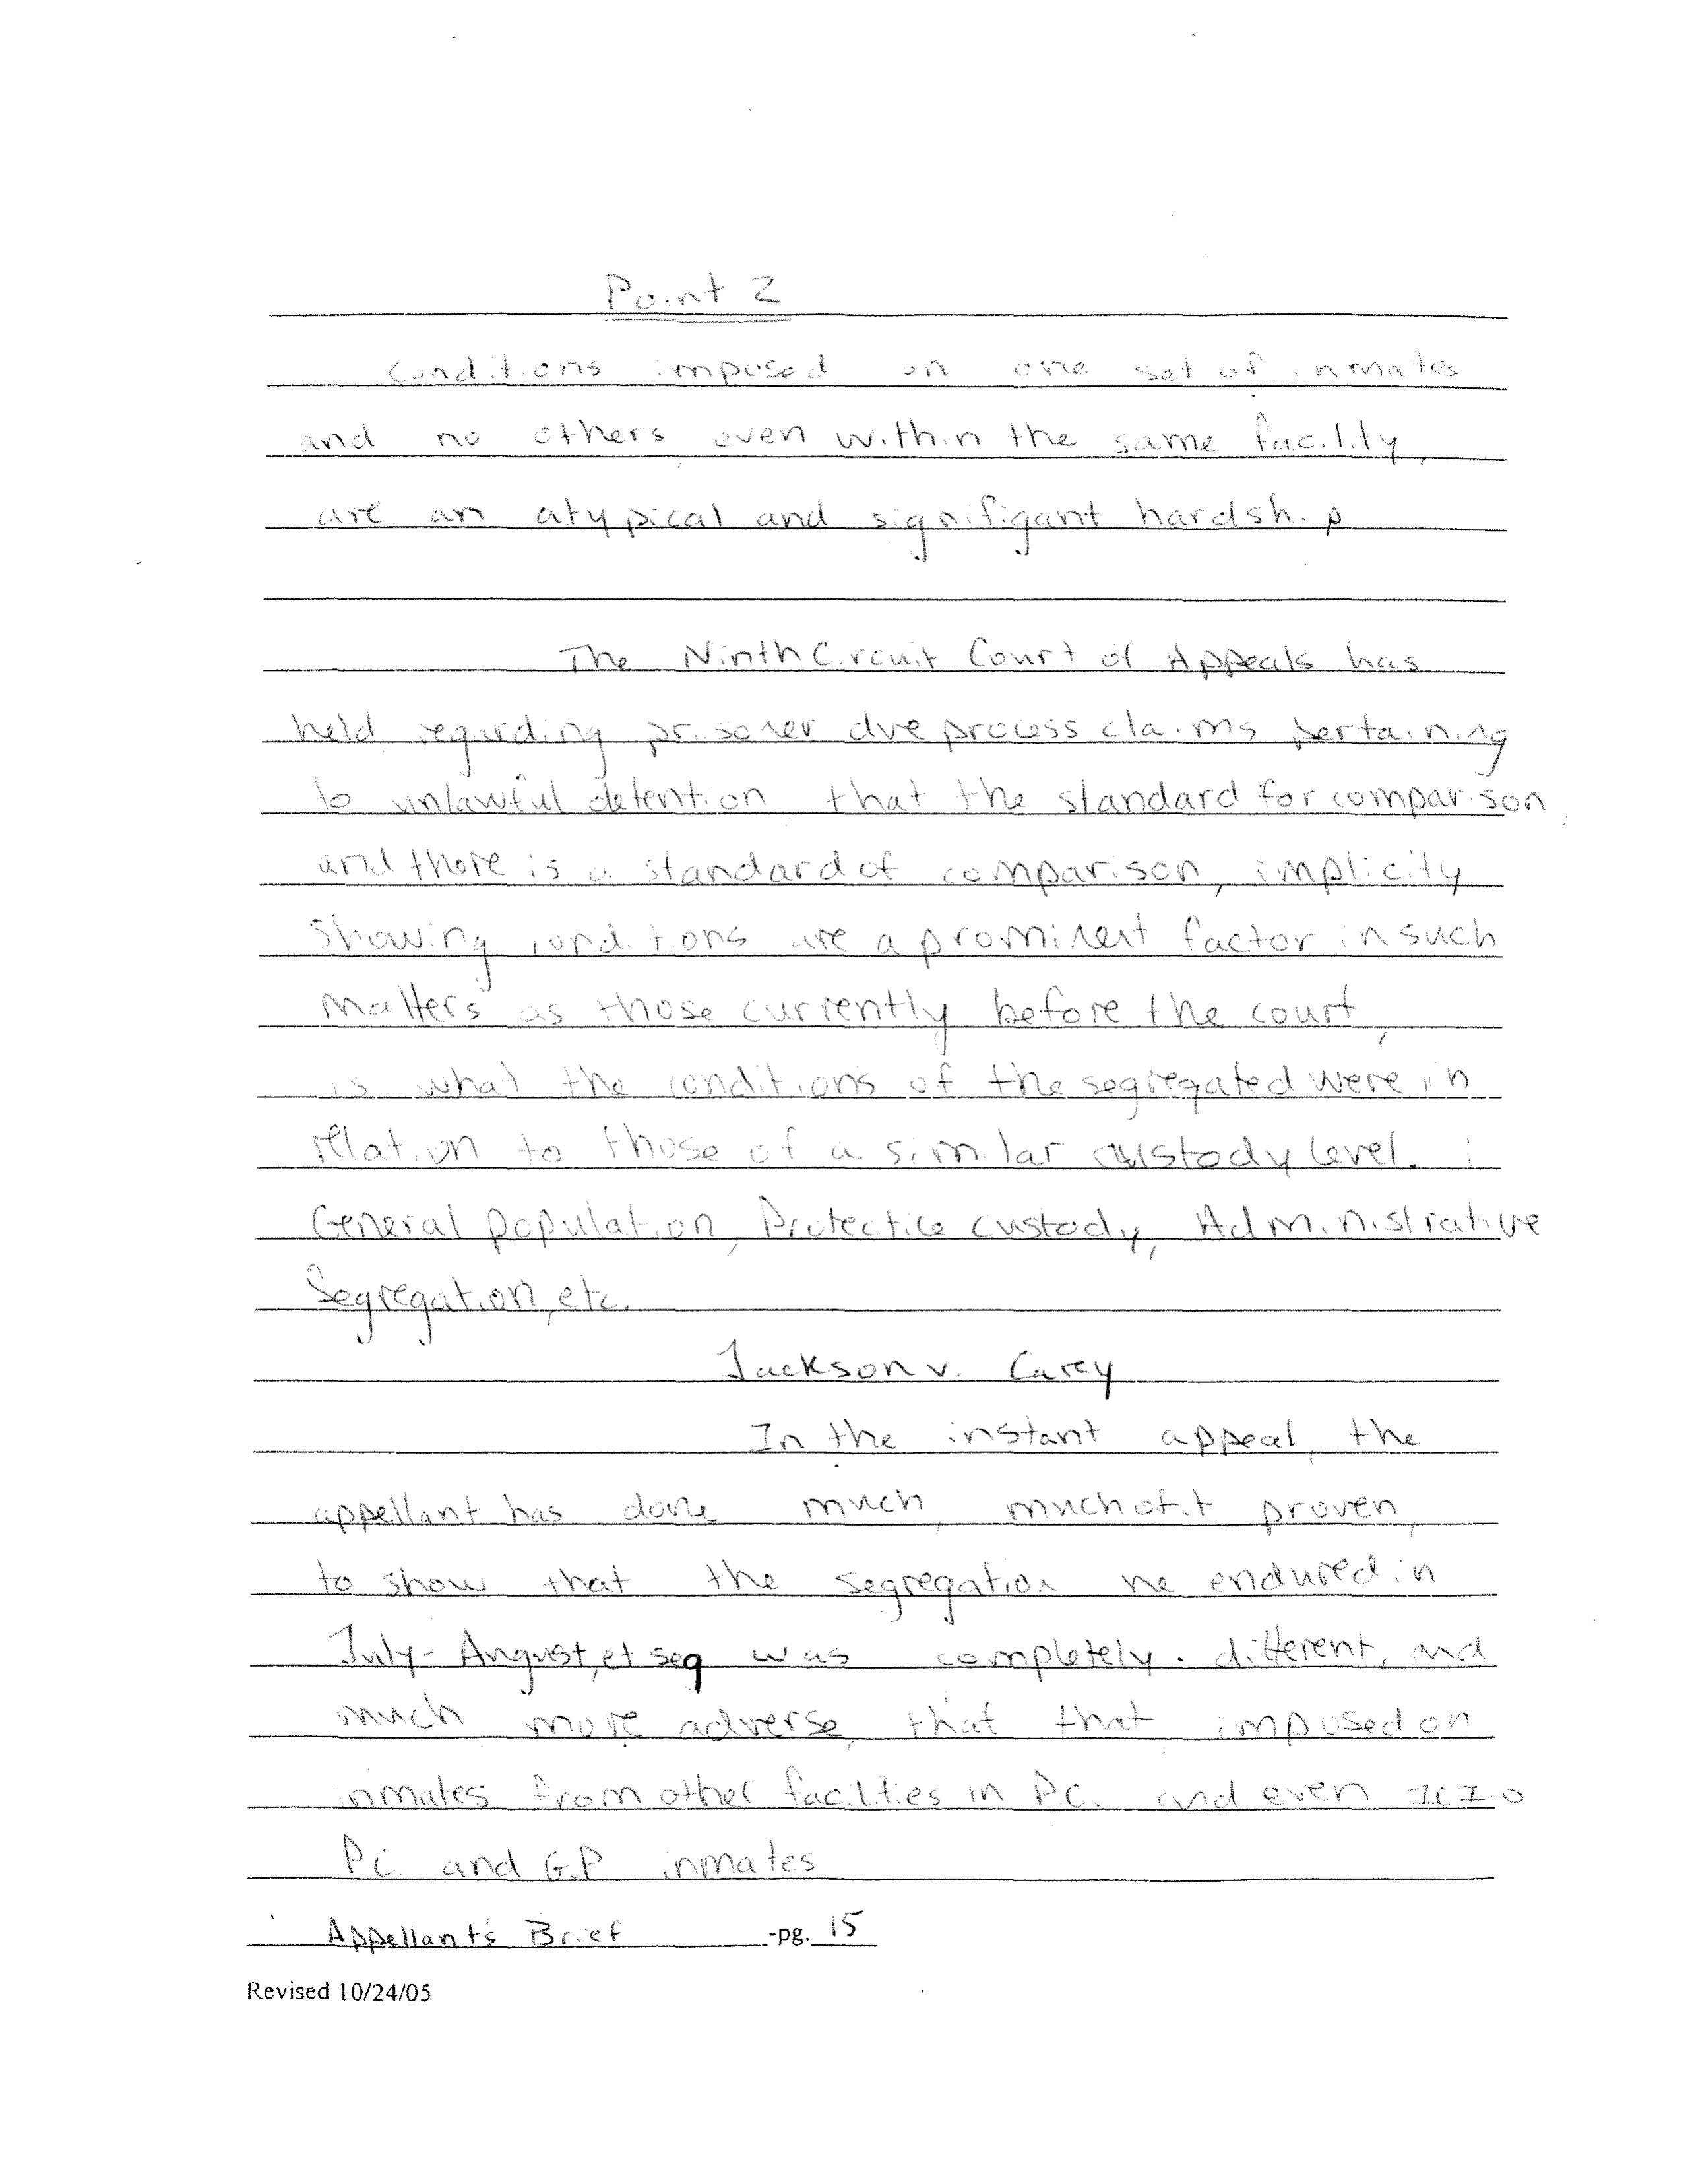 Point 2
conditions imposed on one set of inmates
and no others even within the same facility,
are an atypical and signifigant hardship
The Ninth Circuit Court of Appeals has
held regarding prisoner due process claims pertaining
to unlawful detention that the standard for comparison,
and there is a standard of comparison, implicity
showing conditions are a prominent factor in such
matters as those currently before the court,
is what the conditions of the segregated were in
relation to those of a similar custody level.
General population, Protectice custody, Administrative
Segregation, etc.
Jackson v. Carey
In the instant appeal, the
appellant has done much, much of it proven,
to show that the segregation he endured in
July-August, et seq was completely different, and
much more adverse, that that imposed on
inmates from other facilities in P.C. and even ICI-O
PC and G.P inmates.
Appellant's Brief -pg. 15
Revised 10/24/05